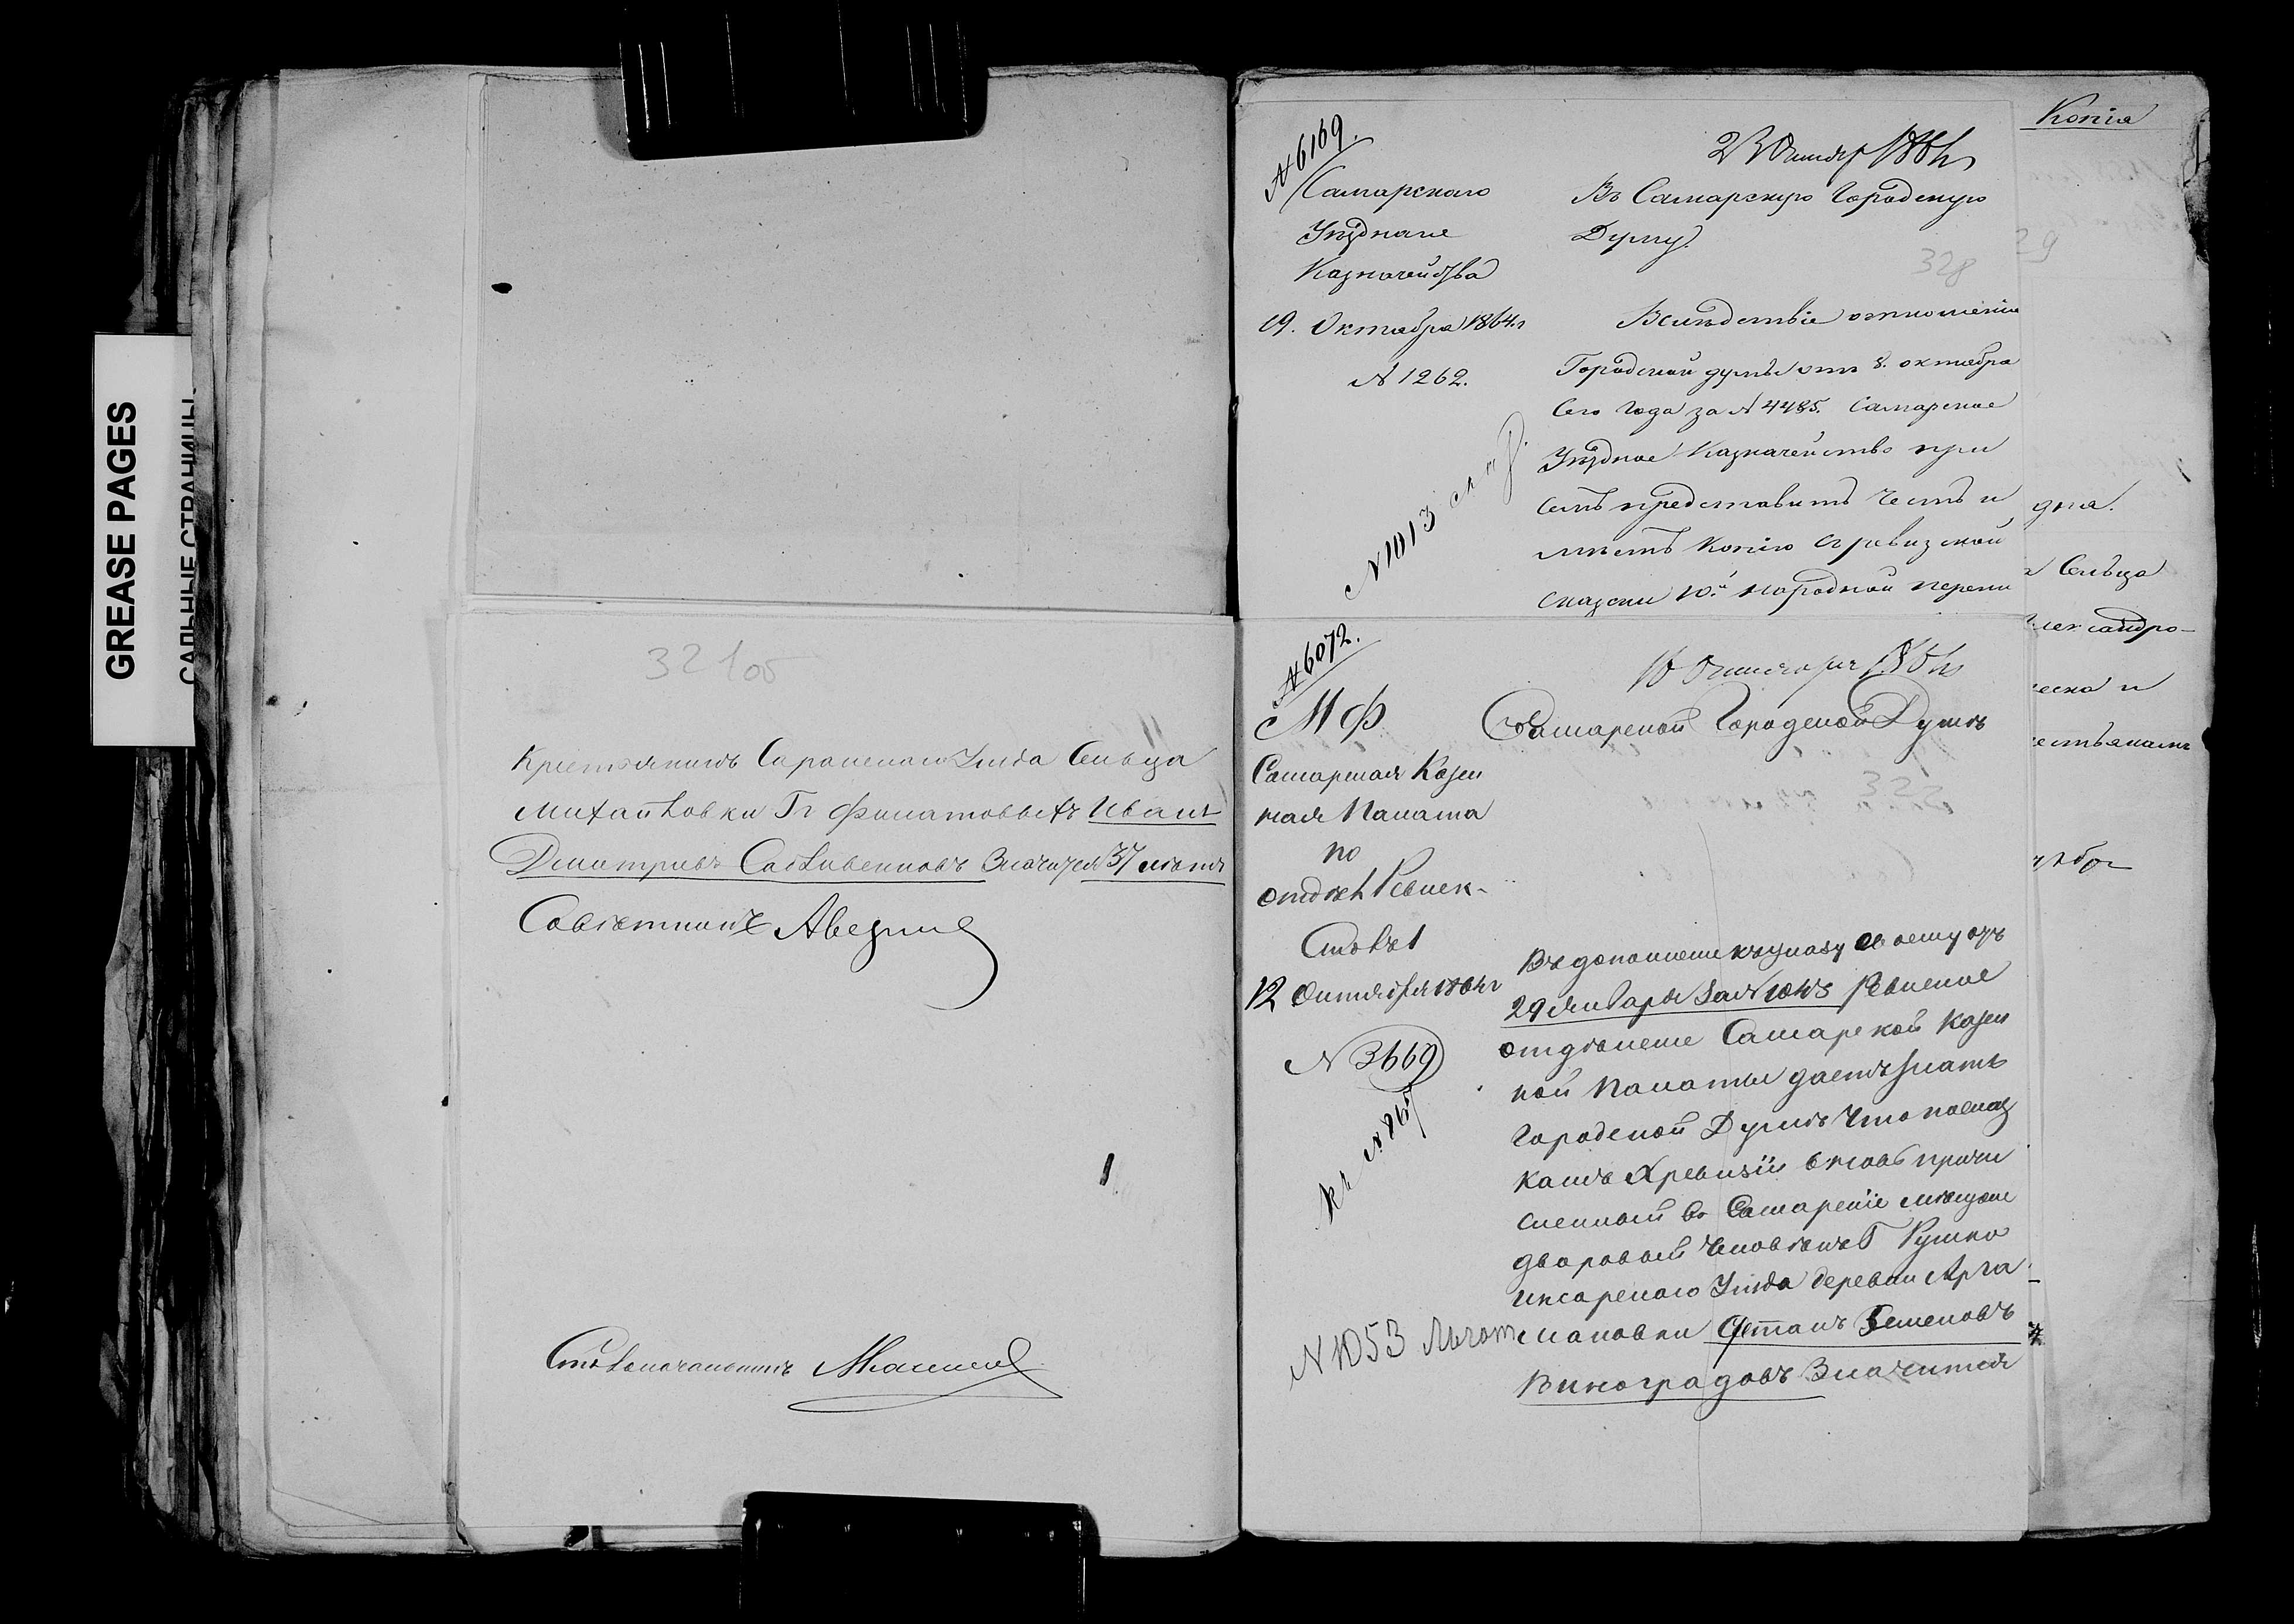 GREASE PAGES
САЛЬНЫЕ СТРАНИЦЫ
321об
Крестьянинъ Саранскаго Уезда Сельца
Михайловки Гг Филатовыхъ Иванъ
Дмитріевъ Значится 37 летъ
Советникъ
Столоначальникъ
№ 6169.
Самарскаго
Уѣзднаго
Казначейства
19. Октября 1864 г
№ 1262.
№ 1013
23 Октября 1864
Въ Самарскую Городскую
Думу.
328
Вслѣдствіе отношенія
Городской думы отъ 8. октября
сего года за № 4485. Самарское
Уѣздное Казначейство при
семъ представить честь и
мѣетъ копію съ ревизской
сказски 10й народной перепи
№ 6072.
МФ
Самарская Казен
ная Палата
по
отдѣл Ревизск-
Столъ 1
12 Октября 1864 г
№ 3669
Къ № 865
№ 1053
16 Октября 1864
Самарской Городской Думѣ
322
Въ дополнение къ указу своему отъ
29 января за № 1043 Ревизское
отдѣление Самарской Казен
ной Палаты даетъ знать
Городской Думѣ что по сказ
камъ X ревизіи вновь причи
сленный въ Самарскіе мѣщане
дворовый человѣкъ Г
Инсарскаго Уезда деревни Арга
маковки Семеновъ
Виноградовъ Значится
Копія
29
дня.
Сельца
лександро-
еска и
естьянамъ